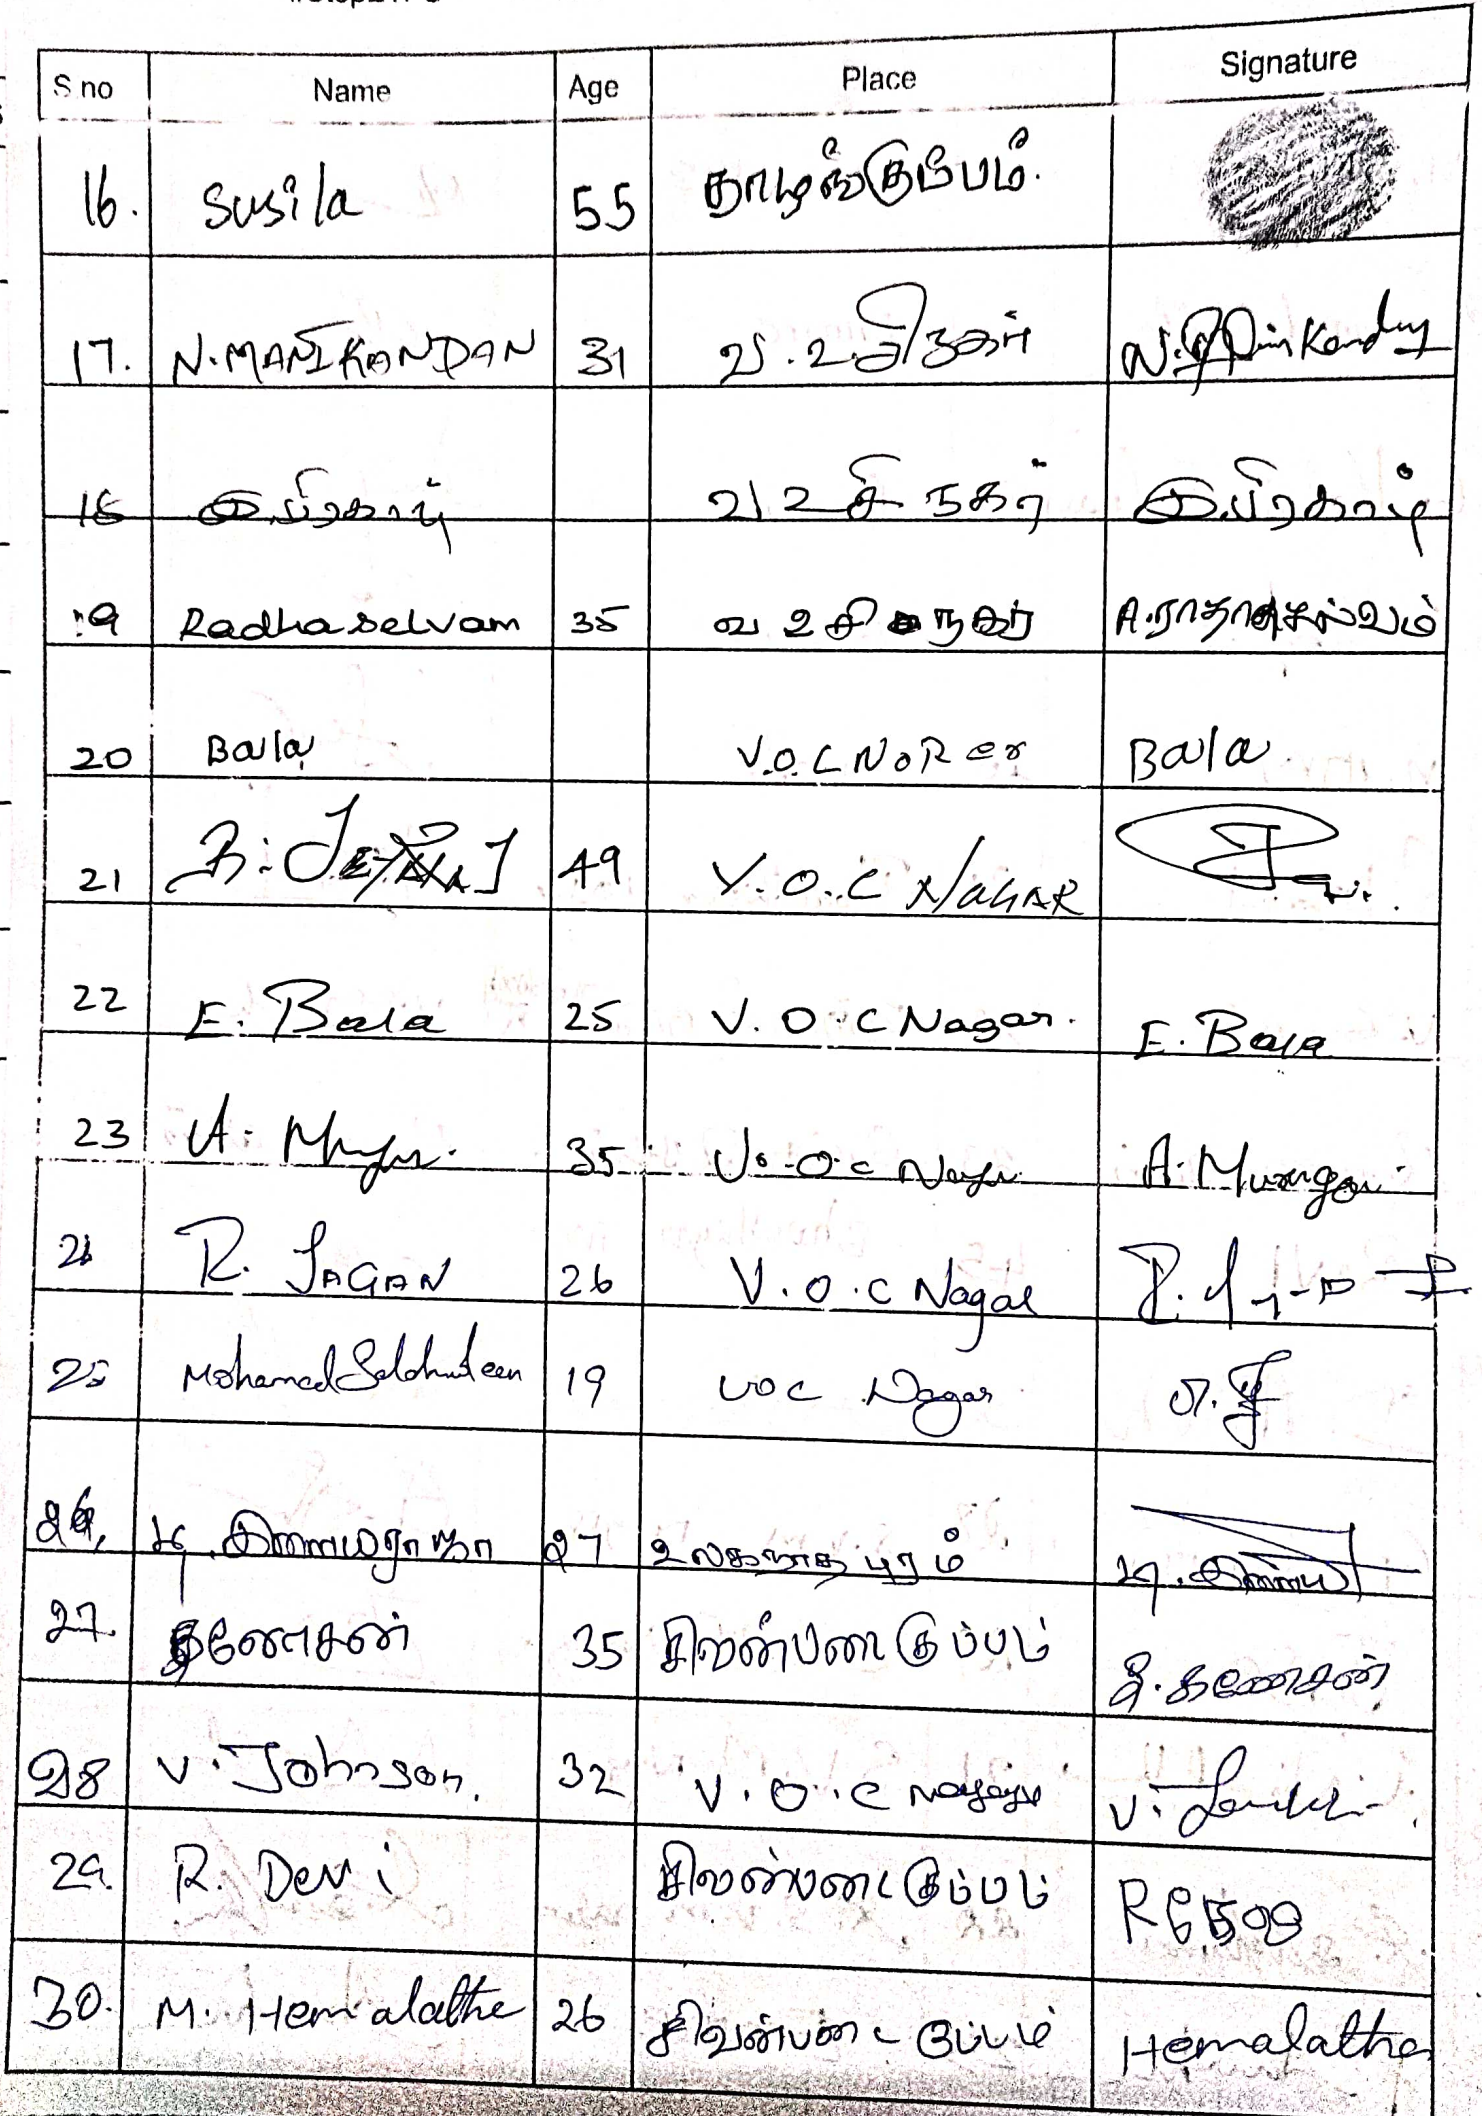 S.no Name Age Place Signature
16. Susila 55 தாழங்குப்பம்.
17. N.MANIKANDAN 31 வ.உ.சிநகர்
18 இ.பிரகாஷ் வ உ சி நகர் இ.பிரகாஷ்
19 Radhaselvam 35 வ உ சி நகர் A.ராதாசெல்வம்
20 Bala V.O.C NORer Bala
21 49 V.O.C NAGAR
22 E. Bala 25 V.O.C Nagar. E. Bala
23 A. 35 V.O.C A. Murugan
24 R. JAGAN 26 V.O.C Nagar
25 Mohamed 19 VOC Nagar
26, இளையராஜா 27 உலகநாதபுரம்
27. 35 சிவன்படைகுப்பம் கணேசன்
28 V. Johnson. 32 V.O.C
29. R. Devi சிவன்படை குப்பம் R தேவி
30. M. Hemalatha 26 சிவன்படை குப்பம் Hemalatha